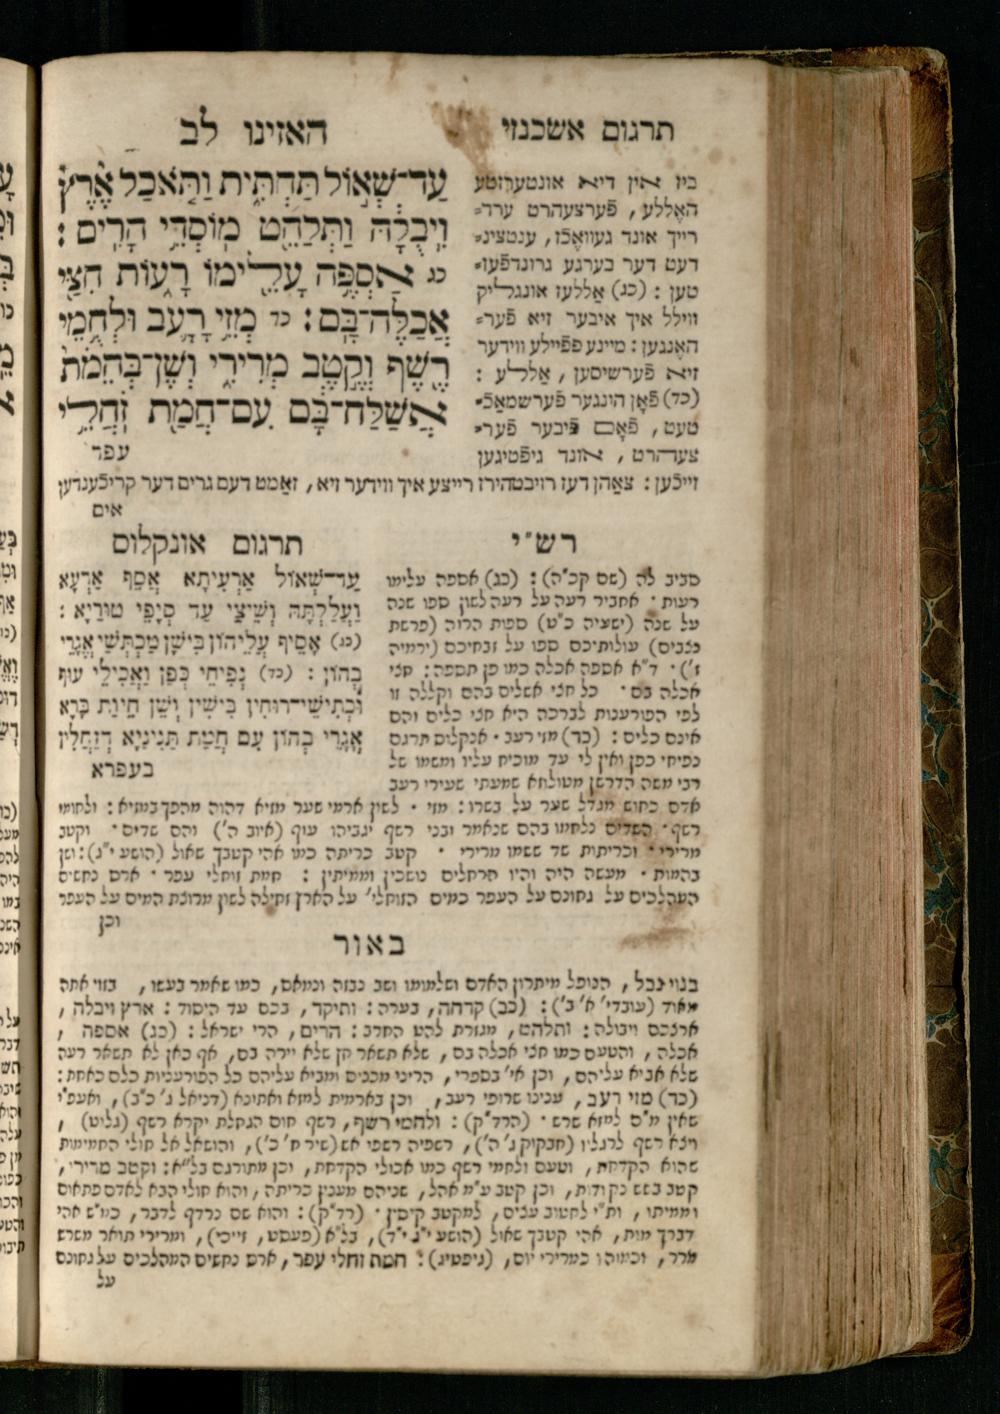 האזינו לב
תרגום אשכנזי
עַד־שְׁאוֹל תַּחְתִּית וַתֹּאכַל אֶרֶץ
וִיבֻלָהּ וַתְּלַהֵט מוֹסְדֵי הָרִים :
כג אַסְפֶּה עָלֵימוֹ רָעוֹת חִצַּי
אֲכַלֶּה־בָּם : כד מְזֵי רָעָב וּלְחֻמֵי
רֶשֶׁף וְקֶטֶב מְרִירִי וְשֶׁן־בְּהֵמֹת
אֲשַׁלַּח־בָּם עִם־חֲמַת זֹחֲלֵי
עפר
ביז אין דיא אונטערזטע
האֶללע, פֿערצעהרט ערד=
רייך אונד געוועכֿז, ענטצינ=
דעט דער בערגע גרונדפֿעז=
טען : (כג) אַללעז אונגליק
ווילל איך איבער זיא פֿער=
האֶנגען : מיינע פּפֿיילע ווידער
זיא פֿערשיסען, אַללע :
(כד) פֿאָן הונגער פֿערשמאַכֿ=
טעט, פֿאָם פֿיבער פֿער=
צעהרט, אונד גיפֿטיגען
זייכֿען : צאַהן דעז רויבטהירז רייצע איך ווידער זיא, זאַמט דעם גרים דער קריכֿענדען
אים
רש"י
סביב לה (שם קכ"ה) : (כג) אספה עלימו
רעות · אחביר רעה על רעה לשון ספו שנה
על שנה (ישעיה כ"ט) ספות הרוה (פרשת
נצבים) עולותיכם ספו על זבחיכם (ירמיה
ז') · ד"א אספה אכלה כמו פן תספה : חצי
אכלה בם · כל חצי אשלים בהם וקללה זו
לפי הפורענות לברכה היא חצי כלים והם
אינם כלים : (כד) מזי רעב · אנקלוס תרגם
נפיחי כפן ואין לי עד מוכיח עליו ומשמו של
רבי משה הדרשן מטולוזא שמעתי שעירי רעב
אדם כחוש מגדל שער על בשרו : מזי · לשון ארמי שער מזיא דהוה מהפך במזיא : ולחומי
רשף · השדים נלחמו בהם שנאמר ובני רשף יגביהו עוף (איוב ה') והם שדים · וקטב
מרירי · וכריתות שד ששמו מרירי · קטב כריתה כמו אהי קטבך שאול (הושע י"ג) : ושן
בהמות · מעשה היה והיו הרחלים נושכין וממיתין : חמת זוחלי עפר · ארס נחשים
המהלכים על גחונם על העפר כמים הזוחלי' על הארץ זחילה לשון מרוצת המים על העפר
וכן
תרגום אונקלוס
עַד־שְׁאוֹל אַרְעִיתָא אֲסֵף אַרְעָא
וַעֲלַלְתַּהּ וְשֵׁיצֵי עַד סְיָפֵי טוּרַיָא :
(כג) אֲסֵיף עֲלֵיהוֹן בִּישָׁן מַכְתְּשַׁי אֱגָרֵי
בְהוֹן : (כד) נְפִיחֵי כְפָן וַאֲכִילֵי עוֹף
וּכְתִישֵׁי־רוּחִין בִּישִׁין וְשֵׁן חֵיוַת בָּרָא
אֱגָרֵי בְהוֹן עִם חֲמַת תַּנִּינַיָא דְּזָחֲלִין
בעפרא
באור
בגוי נבל, הנופל מיתרון האדם ושלמותו ושב נבזה ונמאס, כמו שאמר בעשו, בזוי אתה
מאוד (עובדי' א' ב') : (כב) קדחה, בערה : ותיקד, בכם עד היסוד : ארץ ויבלה,
ארצכם ויבולה : ותלהט, מגזרת להט החרב : הרים, הרי ישראל : (כג) אספה,
אכלה, והטעם כמו חצי אכלה בם, שלא תשאר חץ שלא יירה בם, אף כאן לא תשאר רעה
שלא אביא עליהם, וכן אי' בספרי, הריני מכנים ומביא עליהם כל הפורעניות כלם כאחת :
(כד) מזי רעב, ענינו שרופי רעב, וכן בארמית למזא ואתונא (דניאל ג' כ"ב), ואעפ"י
שאין מ"ם למזא שרש · (הרד"ק) : ולחמי רשף, רשף חום הגחלת יקרא רשף (גלוט),
ויצא רשף לרגליו (חבקוק ג' ה'), רשפיה רשפי אש (שיר ח' ו'), והושאל אל חולי החמימות
שהוא הקדחת, וטעם ולחמי רשף כמו אכולי הקדחת, וכן מתורגם בל"א : וקטב מרירי,
קטב בשש נקודות, וכן קטב ע"מ אהל, שניהם מענין כריתה, והוא חולי הבא לאדם פתאום
וממיתו, ות"י לחטוב עצים, למקטב קיסין · (רד"ק) : והוא שם נרדף לדבר, כמ"ש אהי
דבריך מות, אהי קטבך שאול (הושע י"ג י"ד), בל"א (פעסט, זייכי), ומרירי תואר משרש
מרר, וכמוהו כמרירי יום, (גיפטיג) : חמת זחלי עפר, ארס נחשים המהלכים על גחונם
על